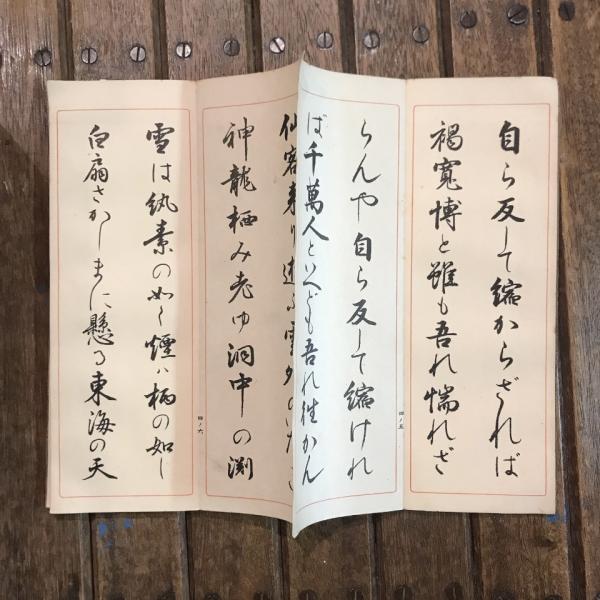 自ら反して縮からざれば
褐寛博と雖も吾れ惴れざ
らんや自ら反して縮けれ
ば千萬人といへども吾れ往かん
四ノ五
仙客来り遊ふ雲外のいたゞ
神龍栖み老ゆ洞中の渕
四ノ六
雪は紈素の如く煙ハ柄の如し
白扇さかしまに懸る東海の天